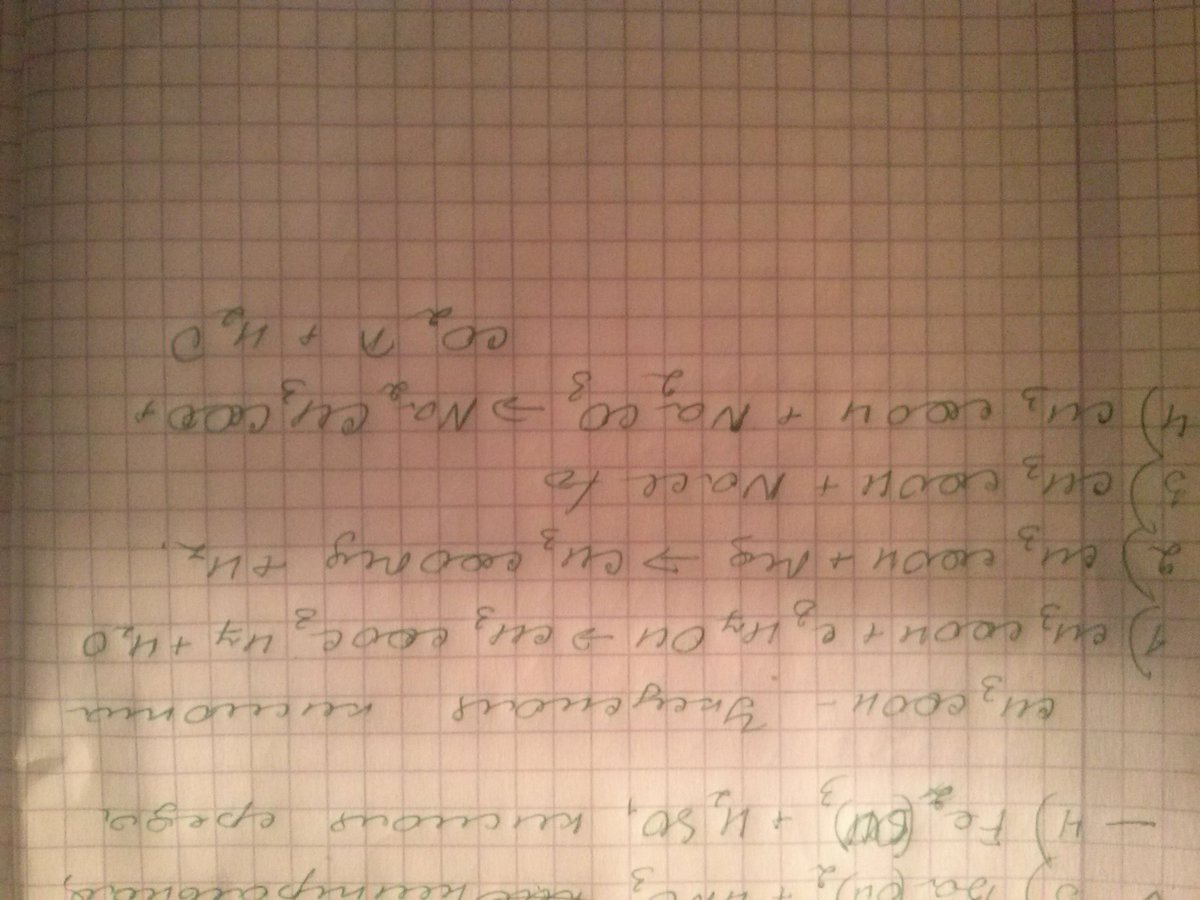 3) Ba(OH)₂ + HNO₃ нейтральная,
— 4) Fe₂( )₃ + H₂SO₄ кислая среда
CH₃COOH – Уксусная кислота
1) CH₃COOH + C₃H₇OH → CH₃COOC₃H₇ + H₂O
2) CH₃COOH + Mg → CH₃COOMg + H₂
3) CH₃COOH + NaCl
4) CH₃COOH + Na₂CO₃ → Na₂CH₃COO +
CO₂ ↑ + H₂O